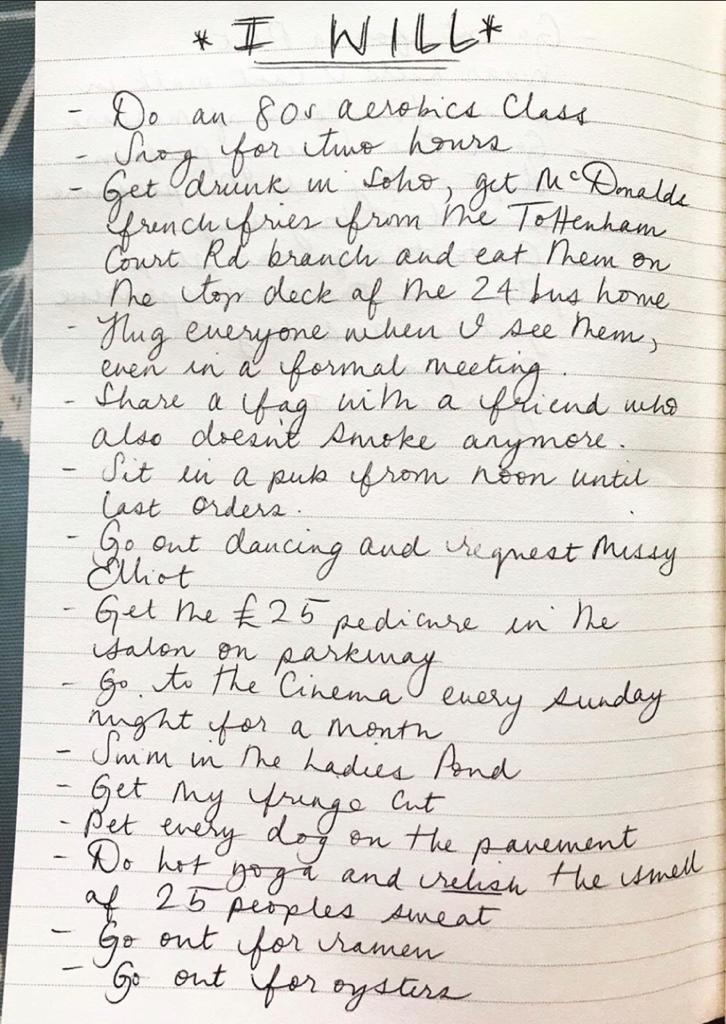 * I WILL *
- Do an 80s aerobics class
- Snog for two hours
- Get drunk in Soho, get McDonalds
french fries from the Tottenham
Court Rd branch and eat them on
the top deck of the 24 bus home
- Hug everyone when I see them,
even in a formal meeting.
- Share a fag with a friend who
also doesn't smoke anymore.
- Sit in a pub from noon until
last orders.
- Go out dancing and request Missy
Elliot
- Get the £25 pedicure in the
salon on parkway
- Go to the Cinema every sunday
night for a month
- Swim in the Ladies Pond
- Get my fringe cut
- Pet every dog on the pavement
- Do hot yoga and relish the smell
of 25 peoples sweat
- Go out for ramen
- Go out for oysters